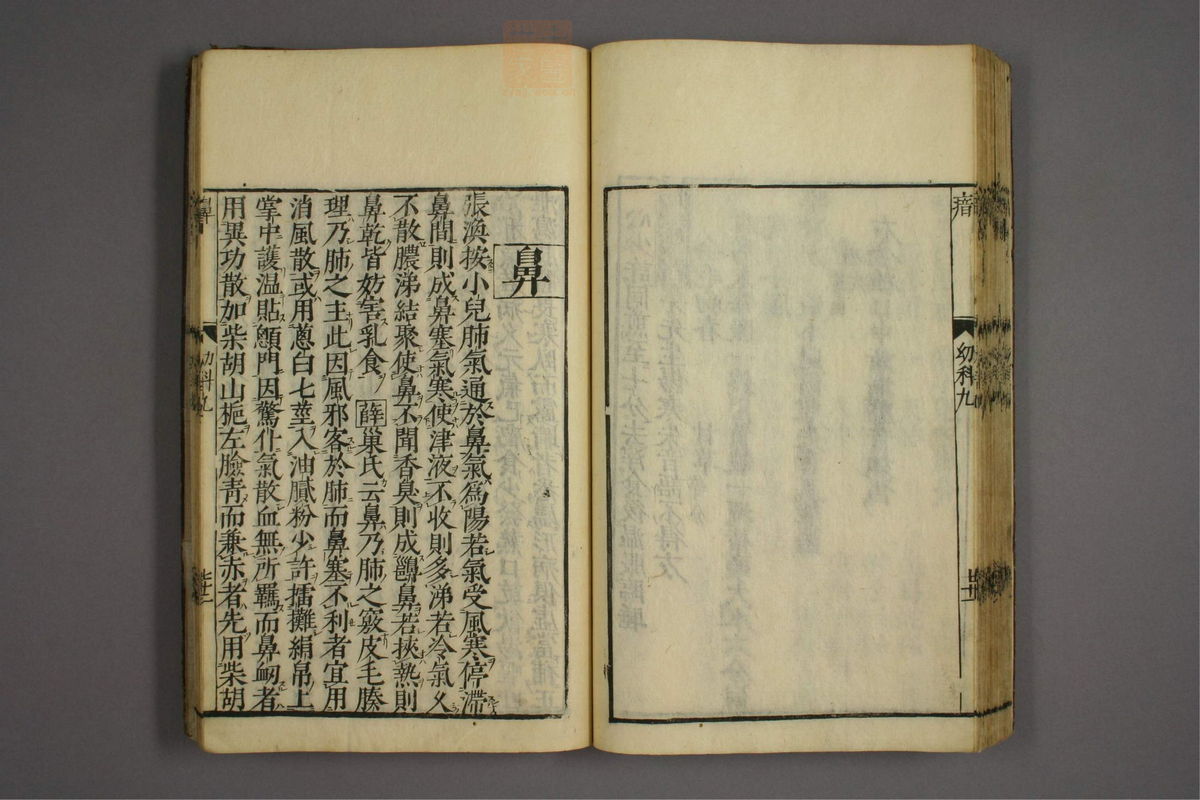 瘄
幼科九
鼻
張渙按小兒肺氣通於鼻氣爲陽若氣受風寒停滯
鼻間則成鼻塞氣寒使津液不收則多涕若冷氣久
不散膿涕結聚使鼻不聞香臭則成鼻若挾熱則
鼻乾皆妨害乳食 薛 巢氏云鼻乃肺之竅皮毛腠
理乃肺之主此因風邪客於肺而鼻塞不利者宜用
消風散或用蔥白七莖入油膩粉少許擂攤絹帛上
掌中護温貼顖門因驚仆氣散血無所羈而鼻衂者
用異功散加柴胡山梔左臉靑而兼赤者先用柴胡
鼻
幼科九